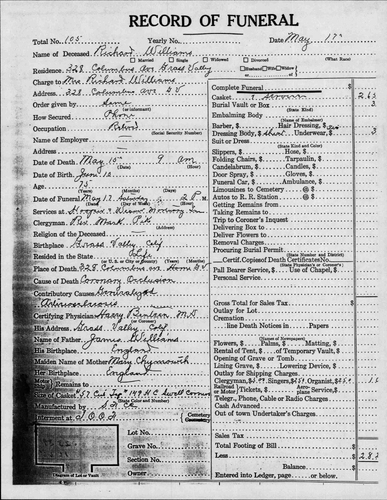 RECORD OF FUNERAL
Total No. 105 Yearly No. Date May 17
Name of Deceased Richard Williams
Married Single Widowed Divorced (What Race)
Residence 328 Columbus Ave Grass Valley Husband Wife Widow
Charge to Mrs. Richard Williams
Address 328 Columbus Ave G V
Order given by Same
(or informant)
How Secured Phone
Occupation Retired
(Social Security Number)
Name of Employer
Address
Date of Death May 15 9 A.M.
Date of Birth June 10
Age 75
Date of Funeral May 17 Saturday 2 P.M.
Services at
Clergyman Rev. Mark
Religion of the Deceased
Birthplace Grass Valley Calif
Resided in the State Life
Place of Death 328 Columbus Ave Home G V
Cause of Death Coronary Occlusion
Contributory Causes Generalized
Arteriosclerosis
Certifying Physician Harry M.D.
His Address Grass Valley Calif
Name of Father James Williams
His Birthplace England
Maiden Name of Mother Mary Plymouth
Her Birthplace England
Remains to
Size of Casket
(State Color and Number)
Manufactured by
Interment at I.O.O.F. Cemetery
Lot No.
Grave No.
Section No.
Owner
Diagram of Lot or Vault
Complete Funeral
Casket
Burial Vault or Box
(State Kind)
Embalming Body
(Name of Embalmer)
Barber, $ Hair Dressing, $
Dressing Body, $ Underwear, $ 3
Suit or Dress
(State Kind and Color)
Slippers, $ Hose, $
Folding Chairs, $ Tarpaulin, $
Candelabrum, $ Candles, $
Door Spray, $ Gloves, $
Funeral Car, $ Ambulance, $
Limousines to Cemetery @ $
Autos to R. R. Station @ $
Getting Remains from
Taking Remains to
Trip to Coroner's Inquest
Delivering Box to
Deliver Flowers to
Removal Charges
Procuring Burial Permit
(State Number and District)
Certif. Copies of Death Certificates No.
(State Physician's or Coroner's)
Pall Bearer Service, $ Use of Chapel, $
Personal Service
Gross Total for Sales Tax $
Outlay for Lot
Cremation
line Death Notices in Papers
(Names of Newspapers)
Flowers, $ Palms, $ Matting, $
Rental of Tent, $ of Temporary Vault, $
Opening of Grave or Tomb
Lining Grave, $ Lowering Device, $
Outlay for Shipping Charges
Clergyman, $ Singers, $ Organist, $
Railroad or Motor Tickets, $ Aeroplane Service, $
Telegr., Phone, Cable or Radio Charges
Cash Advanced
Out of town Undertaker's Charge
Sales Tax
Total Footing of Bill $
Less
Balance
Entered into Ledger, page or below.